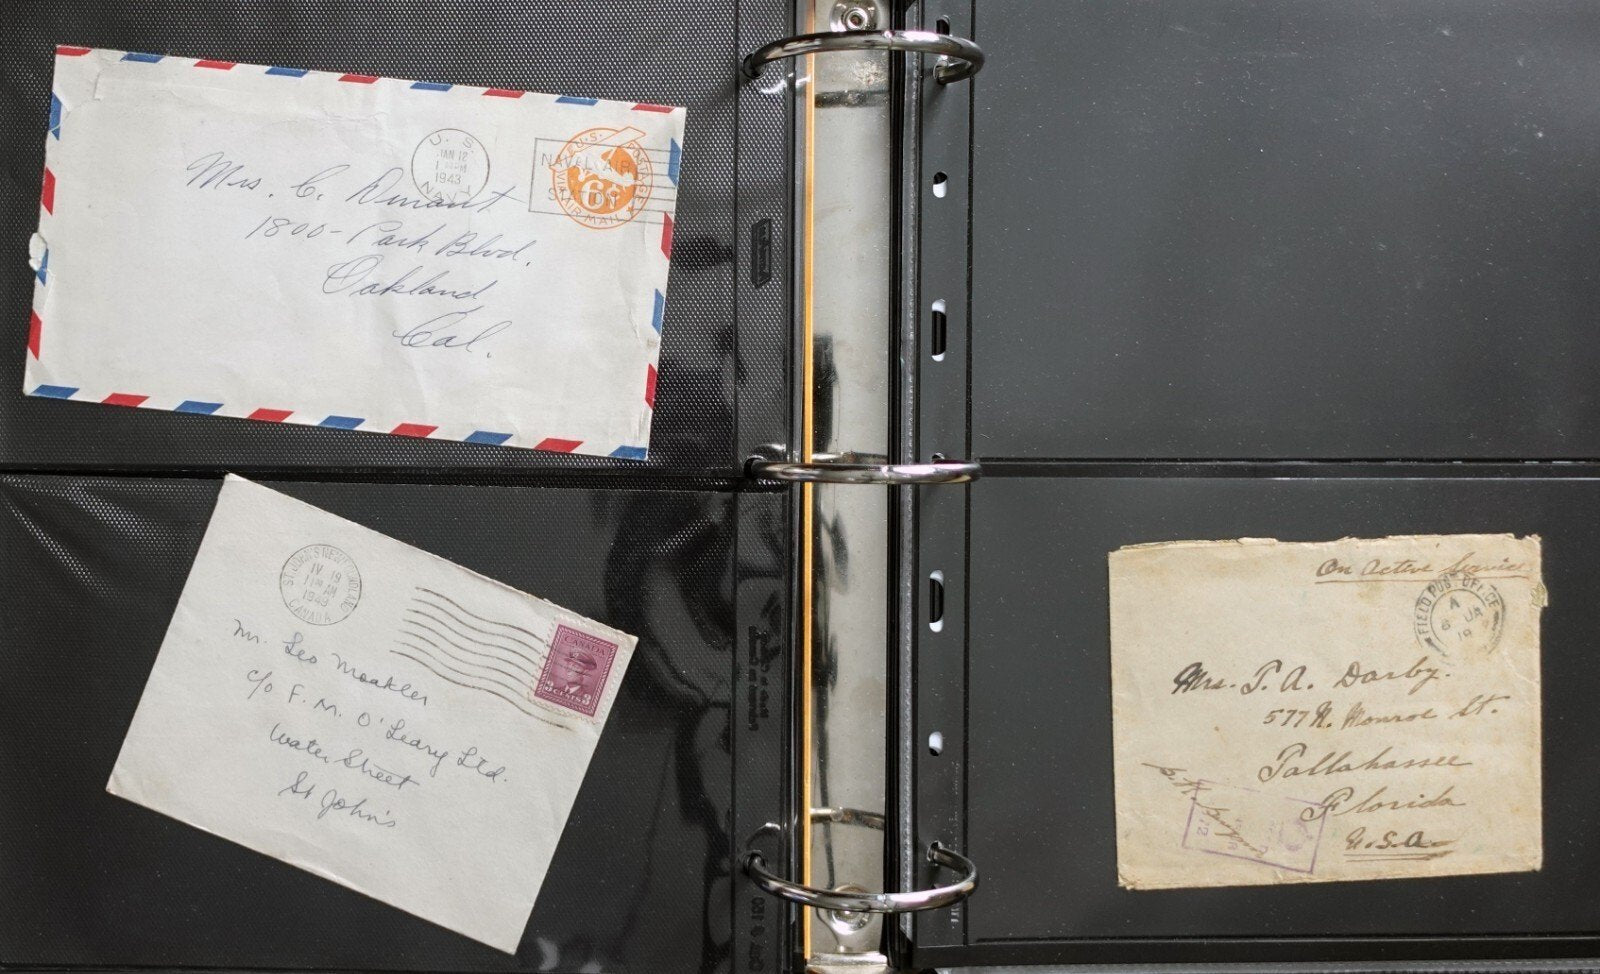 U. S.
JAN 12
1943
NAVY
NAVAL AIR
STATION
U.S. POSTAGE
VIA AIR MAIL
6¢
Mrs. C. Durant
1800 - Park Blvd.
Oakland
Cal.
ST. JOHN'S NEWFOUNDLAND
IV 19
1 AM
1949
CANADA
CANADA
3 CENTS 3
Mr. Leo Moakler
c/o F. M. O'Leary Ltd.
Water Street
St John's
On Active Service
FIELD POST OFFICE
A
6 JA
19
Mrs. T. A. Darby.
577 N. Monroe St.
Tallahassee
Florida
U.S.A.